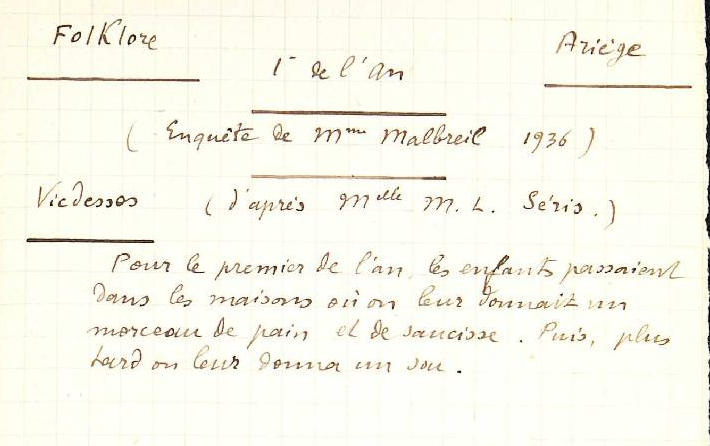 Folklore
Ariège
1r de l'an
( Enquête de Mme Malbreil 1936 )
Vicdessos ( d'après Melle M. L. Séris. )
Pour le premier de l'an, les enfants passaient
dans les maisons où on leur donnait un
morceau de pain et de saucisse. Puis, plus
tard on leur donna un sou.